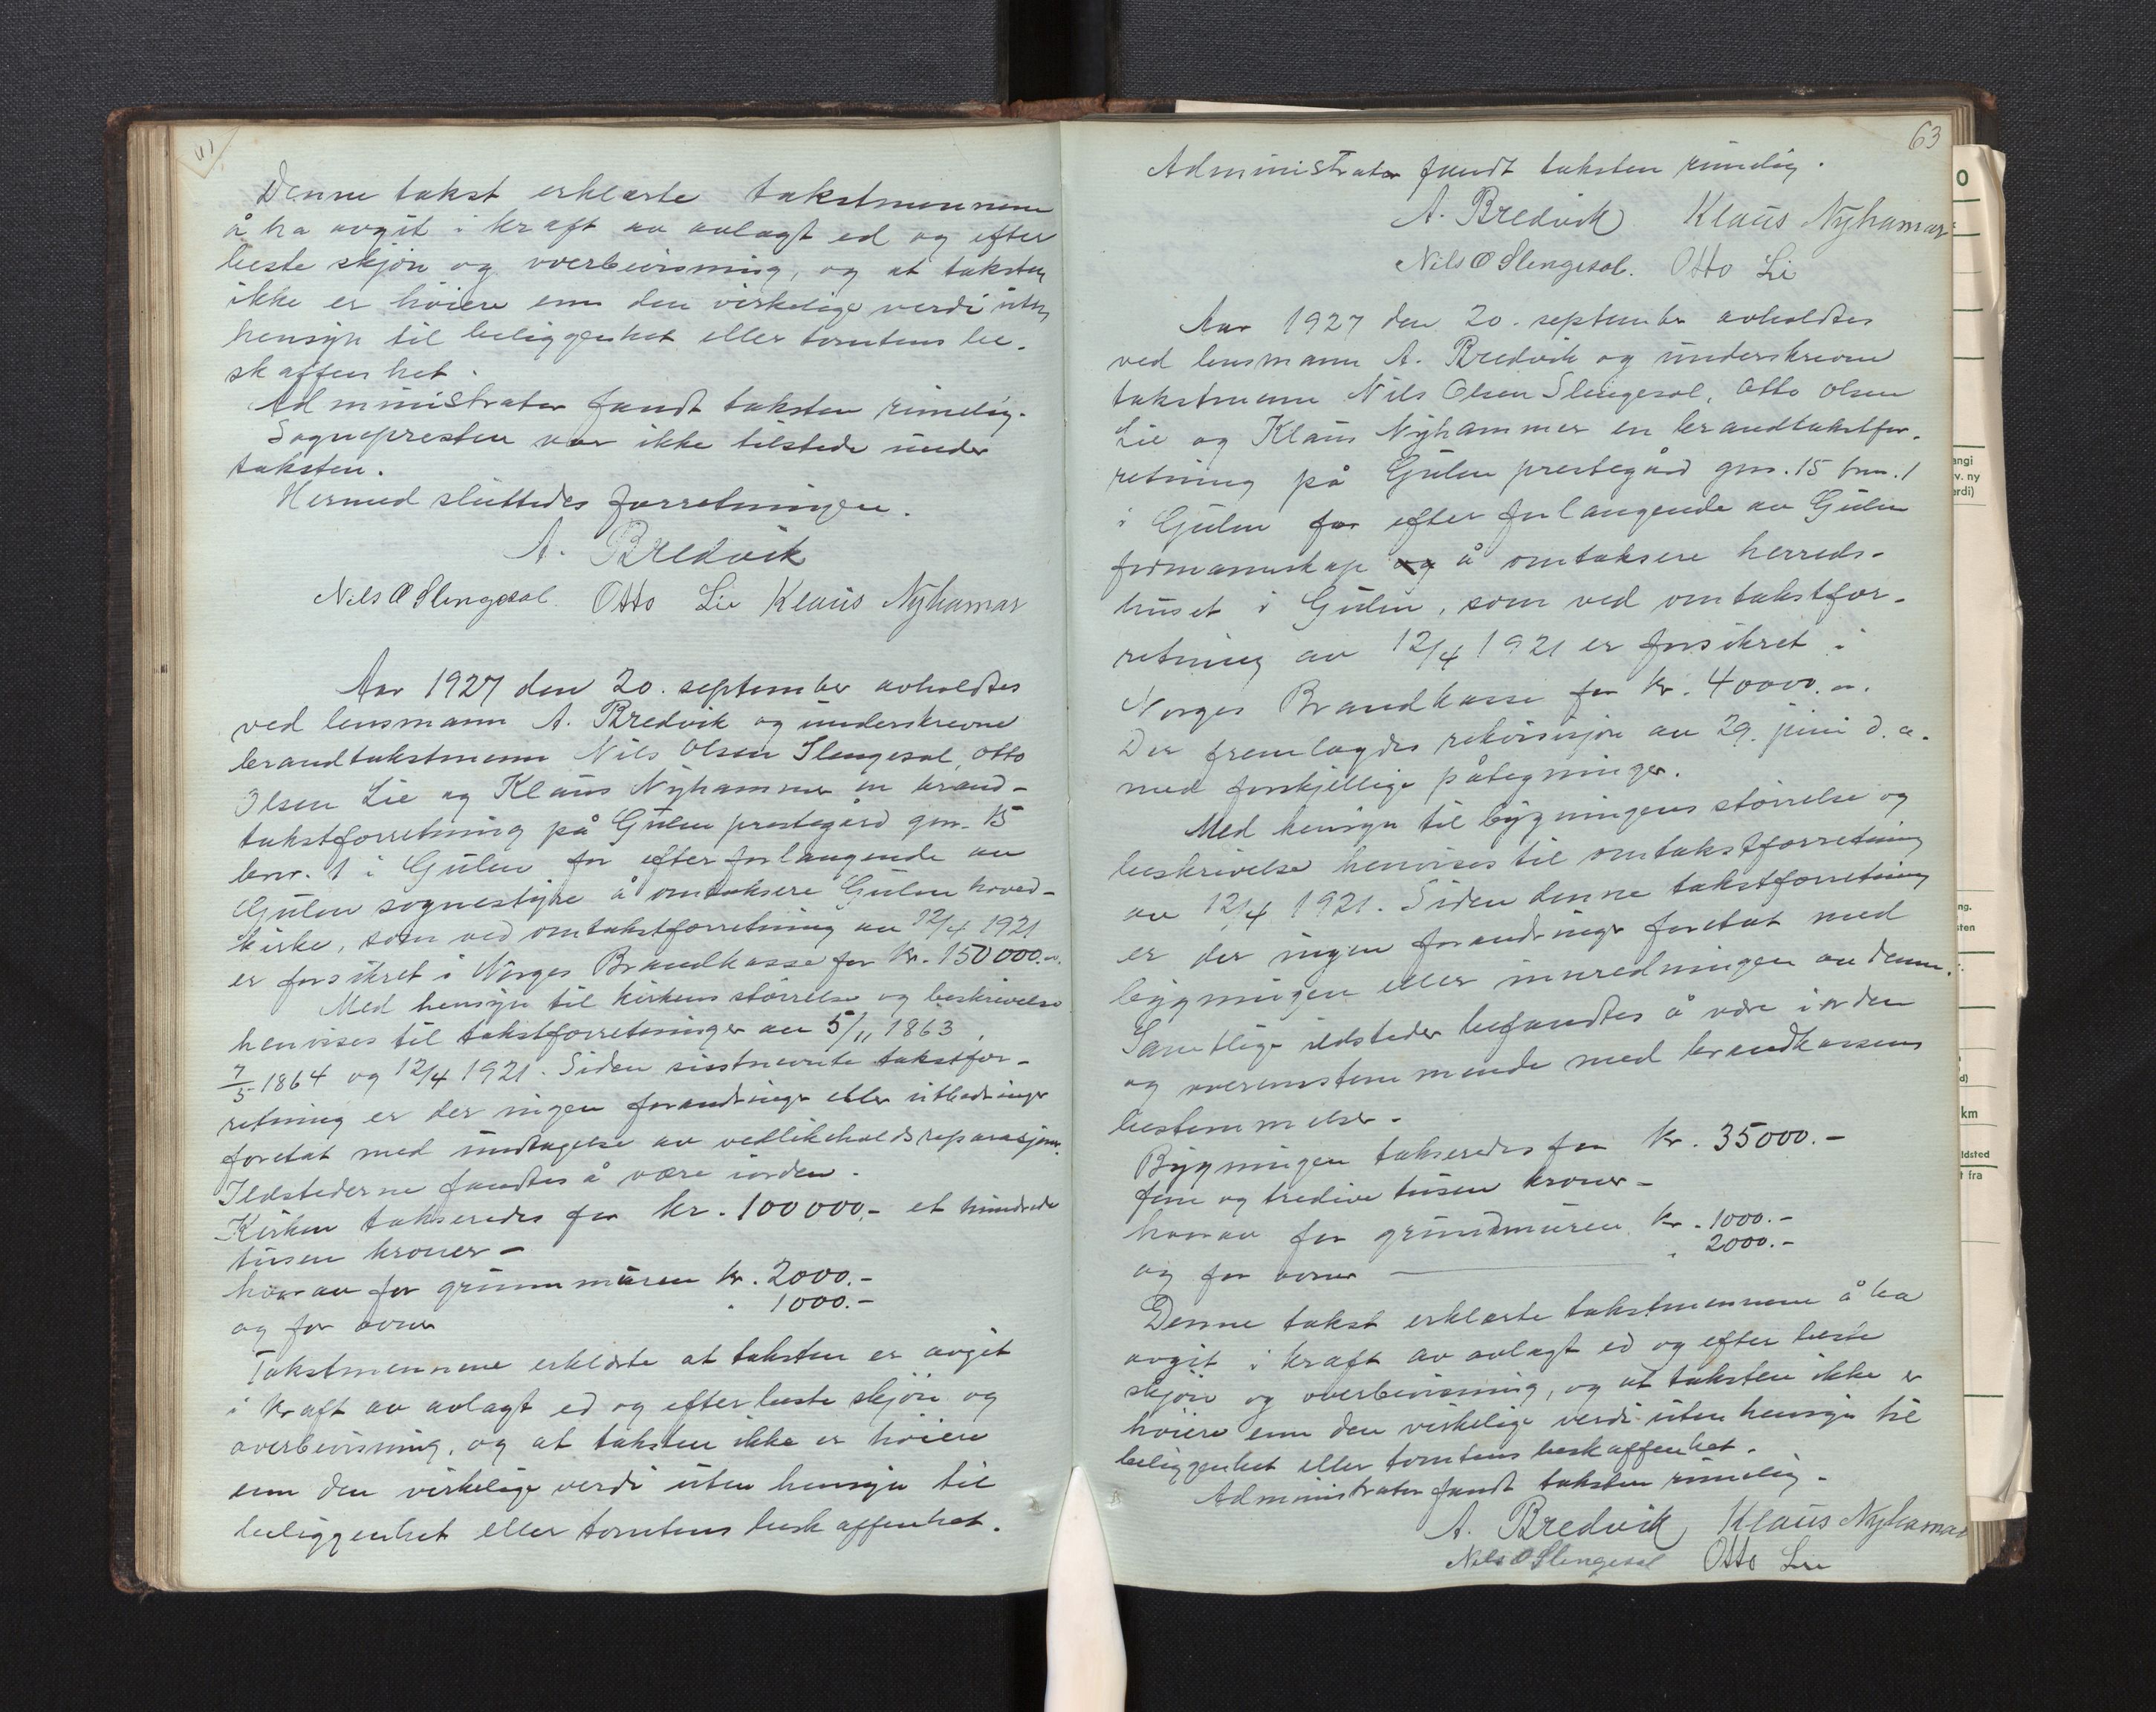 Denne takst erklærte takstmennene
å ha avgit i kraft av avlagt ed og efter
beste skjøn og overbevisning, og at taksten
ikke er høiere enn den virkelige verdi uten
hensyn til beliggenhet eller tomtens be-
skaffenhet.
Administrator fandt taksten rimelig.
Sognepresten var ikke tilstede under
taksten.
Hermed sluttedes forretningen.
A. Bredvik
Nils O Slengesol. Otto Lie Klaus Nyhamar
Aar 1927 den 20. september avholdtes
ved lensmann A. Bredvik og underskrevne
brandtakstmenn Nils Olsen Slengesol, Otto
Olsen Lie og Klaus Nyhammer en brand-
takstforretning på Gulen prestegård gnr. 15
bnr. 1 i Gulen for efter forlangende av
Gulen sognestyre å omtaksere Gulen hoved-
kirke, som ved omtakstforretning av 12/4 1921
er forsikret i Norges Brandkasse for kr. 150000.
Med hensyn til kirkens størrelse og beskrivelse
henvises til takstforretninger av 5/11 1863,
7/5 1864 og 12/4 1921. Siden sistnevnte takstfor-
retning er der ingen forandringer eller utbedringer
foretat med undtagelse av vedlikeholdsreparasjoner.
Ildstederne fandtes å være iorden.
Kirken takseredes for kr. 100000,- et hundrede
tusen kroner -
hvorav for grunnmuren kr. 2000.-
og for ovner " 1000.-
Takstmennene erklærte at taksten er avgit
i kraft av avlagt ed og efter beste skjøn og
overbevisning, og at taksten ikke er høiere
enn den virkelige verdi uten hensyn til
beliggenhet eller tomtens beskaffenhet.
63
Administrator fandt taksten rimelig.
A. Bredvik Klaus Nyhamar
Nils O Slengesol. Otto Li
Aar 1927 den 20. september avholdtes
ved lensmann A. Bredvik og underskrevne
takstmenn Nils Olsen Slengesol, Otto Olsen
Lie og Klaus Nyhammer en brandtakstfor-
retning på Gulen prestegård gnr. 15 bnr. 1
i Gulen for efter forlangende av Gulen
formannskap og å omtaksere herreds-
huset i Gulen, som ved omtakstfor-
retning av 12/4 1921 er forsikret i
Norges Brandkasse for kr. 40000.
Der fremlagdes rekvisisjon av 29. juni d.a.
med forskjellige påtegninger.
Med hensyn til bygningens størrelse og
beskrivelse henvises til omtakstforretning
av 12/4 1921. Siden denne takstforretning
er der ingen forandringer foretat med
bygningen eller innredningen av denne.
Samtlige ildsteder befandtes å være iorden
og overensstemmende med brandkassens
bestemmelser.
Bygningen takseredes for kr. 35000.-
fem og tredive tusen kroner -
hvorav for grundmuren kr. 1000.-
og for ovner " 2000.-
Denne takst erklærte takstmennene å ha
avgit i kraft av avlagt ed og efter beste
skjøn og overbevisning, og at taksten ikke er
høiere enn den virkelige verdi uten hensyn til
beliggenhet eller tomtens beskaffenhet.
Administrator fandt taksten rimelig.
A. Bredvik Klaus Nyhamar
Nils O Slengesol Otto Lie
O
angi
v. ny
erdi)
ng.
sten
d)
km
ldsted
t fra